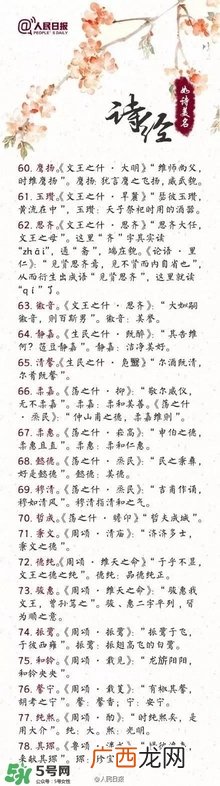 @人民日报
PEOPLE'S DAILY
诗经
如诗美名
60. 鹰扬,《文王之什·大明》“维师尚父,
时维鹰扬”。鹰扬:犹言鹰之飞扬,威武貌。
61. 玉瓒,《文王之什·旱麓》“瑟彼玉瓒,
黄流在中”,玉瓒:天子祭祀时用的酒器。
62. 思齐,《文王之什·思齐》“思齐大任,
文王之母”。这里“齐”字其实读
“zhāi”,通“斋”,端庄貌。《论语·里
仁》:“见贤思齐焉,见不贤而内自省也”,
从而衍生出成语“见贤思齐”,这里就读
“qí”了。
63. 徽音,《文王之什·思齐》“大姒嗣
徽音,则百斯男”。徽音:美誉。
64. 静嘉,《生民之什·既醉》“其告维
何?笾豆静嘉”。静嘉:洁净美好。
65. 清馨,《生民之什·凫鹥》“尔酒既清,
尔肴既馨”。
66. 柔嘉,《荡之什·抑》:“敬尔威仪,
无不柔嘉”。柔嘉:柔和美善。《荡之什
·烝民》:“仲山甫之德,柔嘉维则”。
67. 柔惠,《荡之什·崧高》“申伯之德,
柔惠且直”。柔惠:柔和仁惠。
68. 懿德,《荡之什·烝民》“民之秉彝,
好是懿德”。懿德:美德。
69. 穆清,《荡之什·烝民》“吉甫作诵,
穆如清风”。穆清指清和之气。
70. 哲成,《荡之什·瞻卬》“哲夫成城”。
71. 秉文,《周颂·清庙》“济济多士,
秉文之德”。
72. 德纯,《周颂·维天之命》“于乎不显,
文王之德之纯”。德纯:品德纯正。
73. 骏惠,《周颂·维天之命》“骏惠我
文王,曾孙笃之”。骏、惠二字平列,皆
为顺之意。
74. 振鹭,《周颂·振鹭》“振鹭于飞,
于彼西雍”。振鹭:振翅高飞的白鹭。
75. 和铃,《周颂·载见》“龙旂阳阳,
和铃央央”。
76. 馨宁,《周颂·载芟》“有椒其馨,
胡考之宁”。馨:馨香;宁:安宁。
77. 纯熙,《周颂·酌》“时纯熙矣,是
用大介”。纯:大。熙:光明。
78. 其琛,《鲁颂·泮水》
来献其琛”。琛:珍宝
5号网
www.5h.com
广西龙网
@人民日报